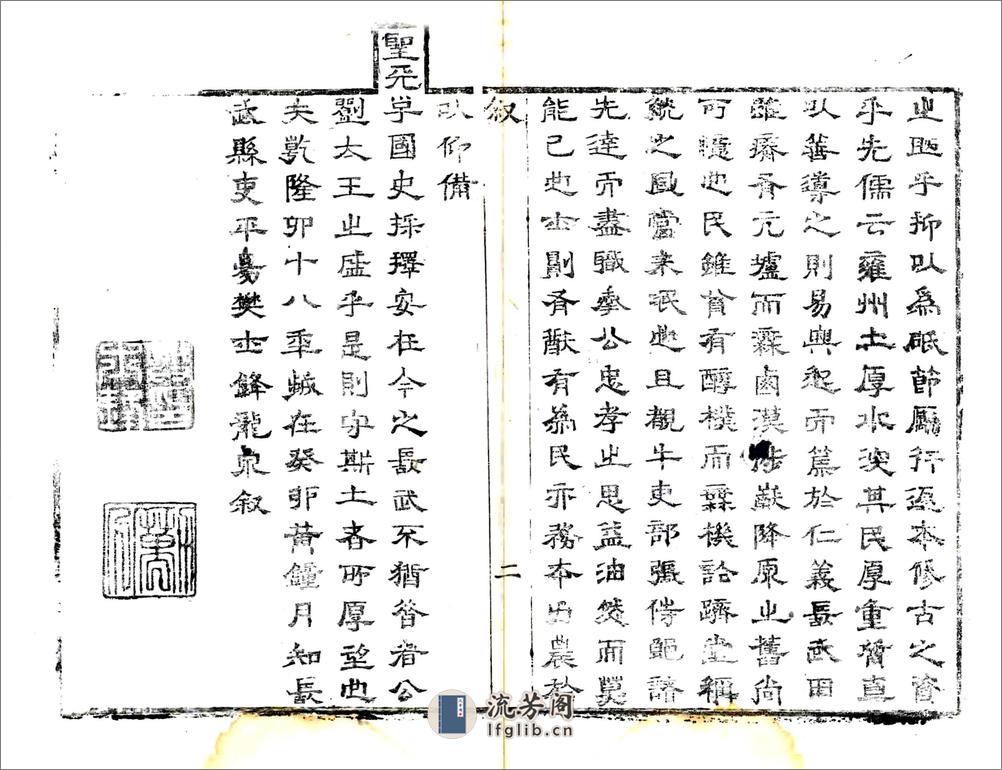 之興乎抑以爲砥節厲行返本修古之資
乎先儒云雍州土厚水深其民厚重質直
以善導之則易興起而篤於仁義長武田
雖瘠有元壚而無鹵漠陟巘降原之舊尚
可也民雖貧有醇樸而無機訟躋堂稱
觥之風當未泯也且觀牛吏部張侍郎諸
先達而盡職奉公忠孝之思益油然而莫
能已也士則有猷有爲民亦務本力農於
敘
二
以仰備
聖天
子國史採擇安在今之長武不猶昔者公
劉太王之盛乎是則守斯土者所厚望也
夫乾隆四十八年歲在癸卯黃鐘月知長
武縣吏平昜樊士鋒龍泉敘
流芳阁
lfglib.cn